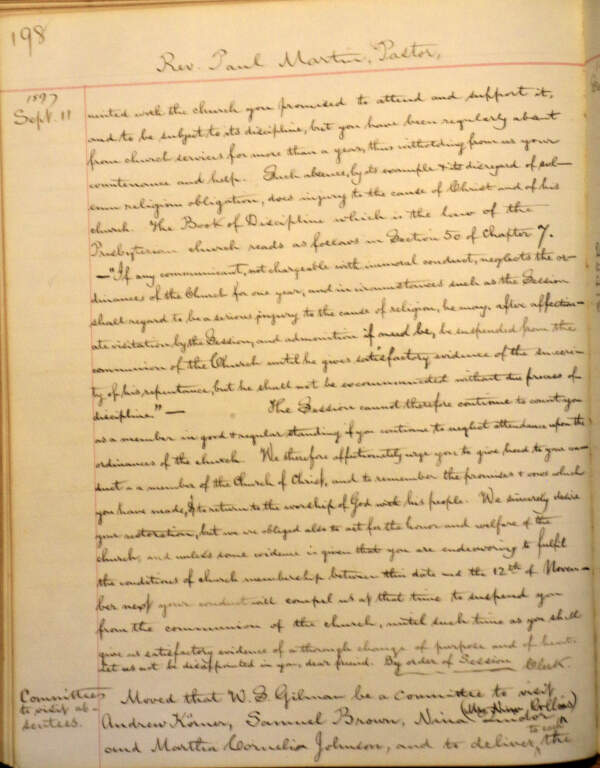 198
Rev. Paul Martin, Pastor,
1897
Sept. 11
united with the church you promised to attend and support it,
and to be subject to its discipline, but you have been regularly absent
from church services for more than a year, thus witholding from us your
countenance and help. Such absence, by its example & its disregard of sol-
emn religious obligation, does injury to the cause of Christ and of his
church. The Book of Discipline which is the law of the
Presbyterian church reads as follows in Section 50 of Chapter 7.
—"If any communicant, not chargeable with immoral conduct, neglects the or-
dinances of the Church for one year, and in circumstances such as the Session
shall regard to be a serious injury to the cause of religion, he may, after affection-
ate visitation by the Session, and admonition if need be, be suspended from the
communion of the Church until he gives satisfactory evidence of the sinceri-
ty of his repentance, but he shall not be excommunicated without due process of
discipline."— The Session cannot therefore continue to count you
as a member in good & regular standing if you continue to neglect attendance upon the
ordinances of the church. We therefore affectionately urge you to give heed to your con-
duct as a member of the Church of Christ, and to remember the promises & vows which
you have made, & to return to the worship of God with his people. We sincerely desire
your restoration, but we are obliged also to act for the honor and welfare of the
church, and unless some evidence is given that you are endeavoring to fulfil
the conditions of church membership between this date and the 12th of Novem-
ber next your conduct will compel us at that time to suspend you
from the communion of the church, until such time as you shall
give us satisfactory evidence of a thorough change of purpose and of heart.
Let us not be disappointed in you, dear friend. By order of Session Clerk.
Committees
to visit ab-
sentees.
Moved that W. S. Gilman be a committee to visit
Andrew Körner, Samuel Brown, Nina (Mrs. Nina Collins)
and Martha Cornelia Johnson, and to deliver to each the